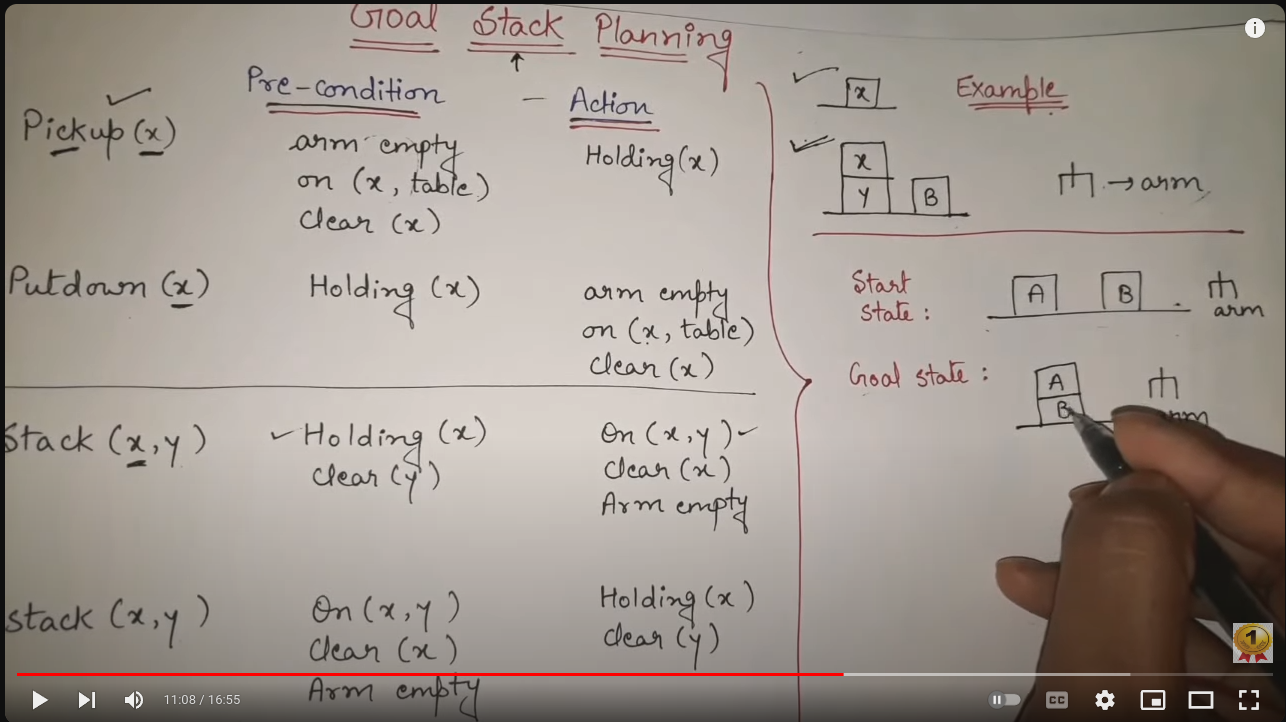 Goal Stack Planning
Pre-condition - Action
Pickup (x)
arm empty
on (x, table)
clear (x)
Holding (x)
Putdown (x)
Holding (x)
arm empty
on (x, table)
clear (x)
Stack (x, y)
Holding (x)
clear (y)
On (x, y)
clear (x)
Arm empty
stack (x, y)
On (x, y)
clear (x)
Arm empty
Holding (x)
clear (y)
x
Example
x
y
B
→ arm
Start
state :
A
B
arm
Goal state :
A
B
arm
1
11:08 / 16:55
CC